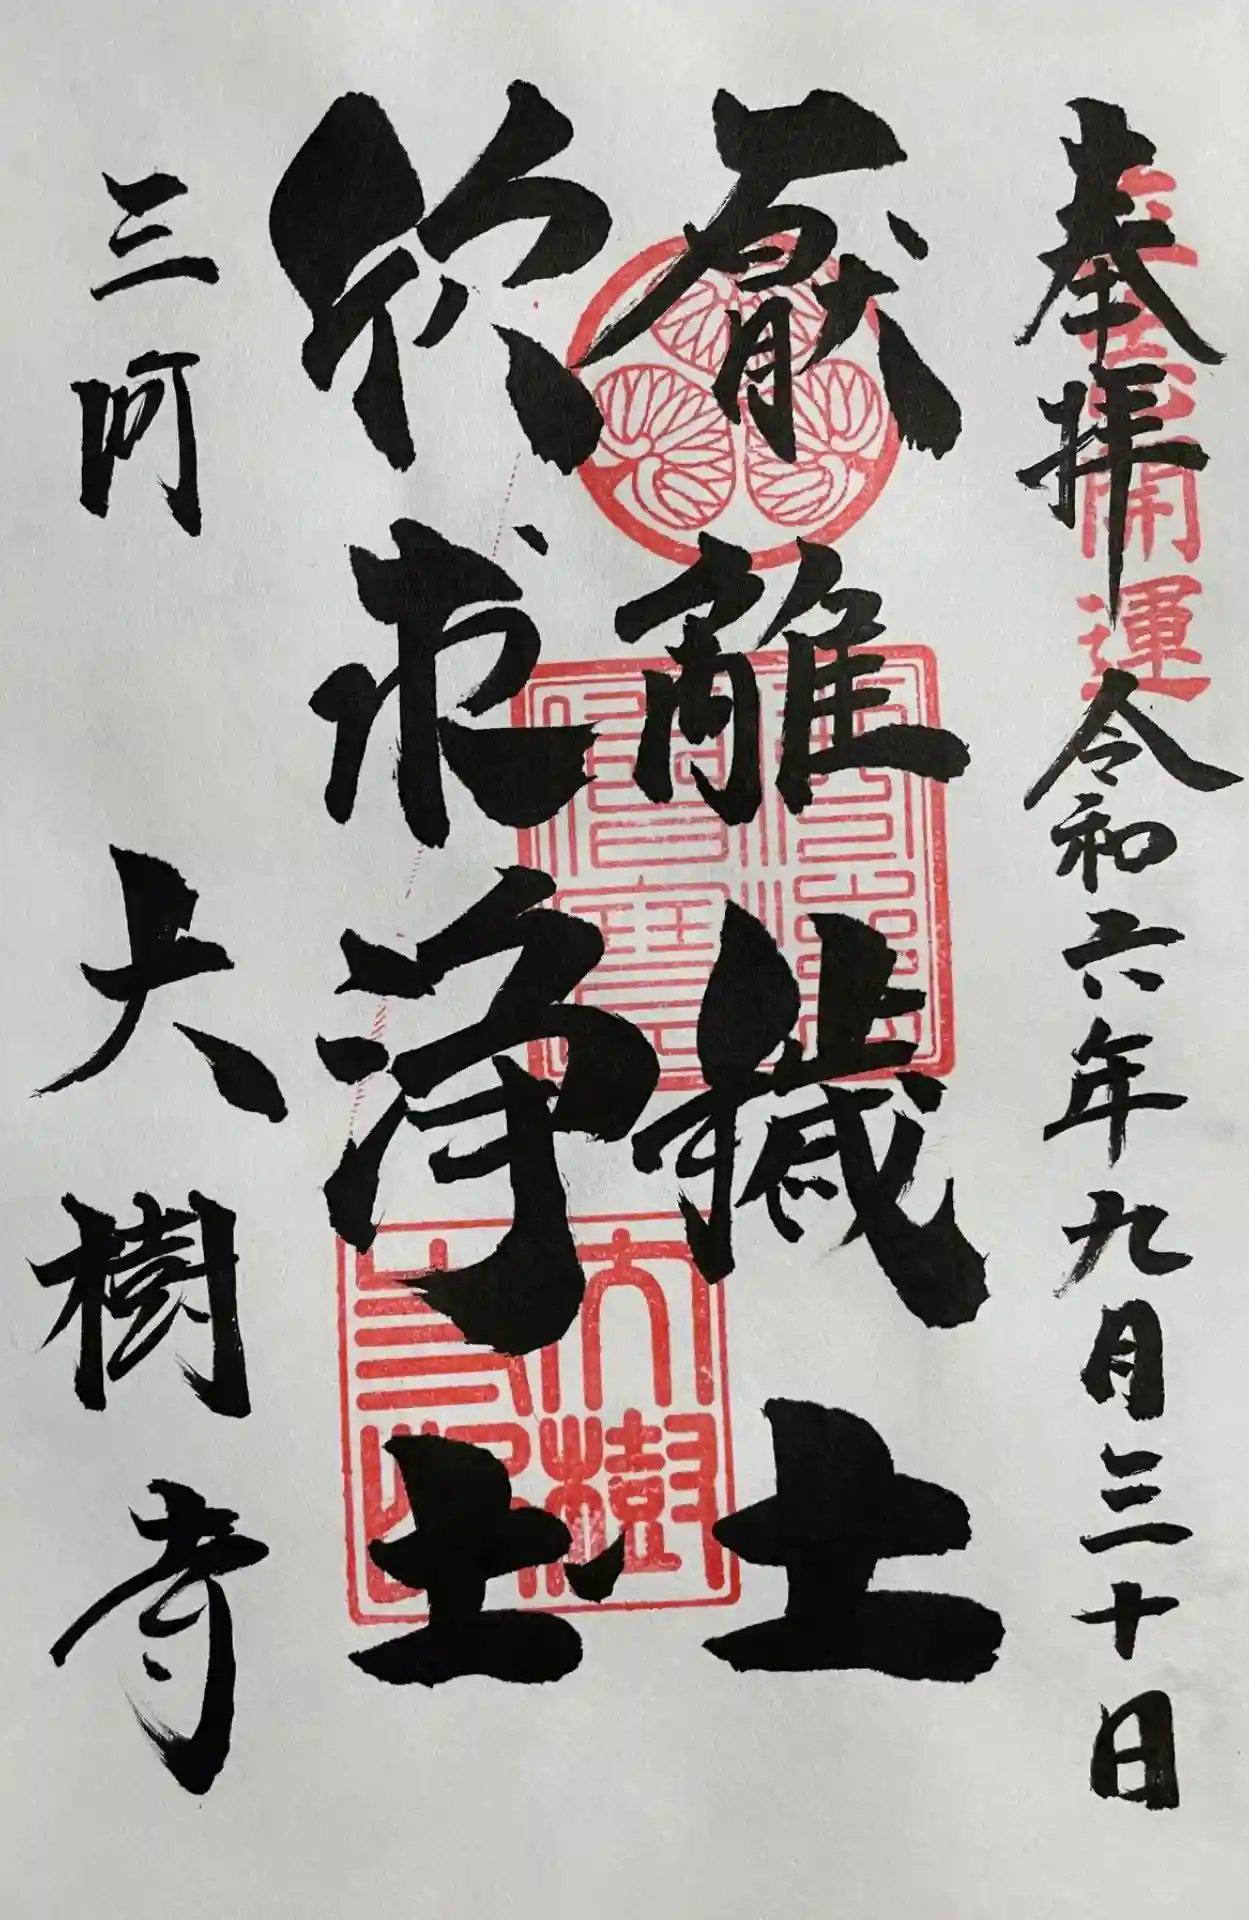 奉拝 令和六年九月三十日
開運
厭離穢土
欣求浄土
三河 大樹寺
大樹